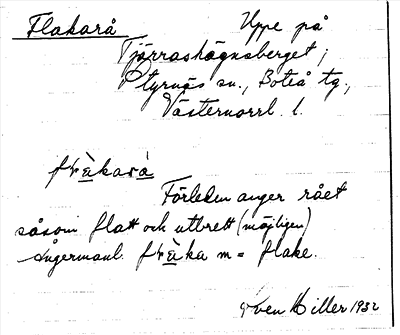 Flakarå Uppe på
Tjärraskögnsberget,
Styrnäs sn., Boteå tg.,
Västernorrl. l.
flàkarå
Förleden anger rået
såsom flatt och utbrett (möjligen)
Ångermanl. flàka m = flake.
Sven Hiller 1932